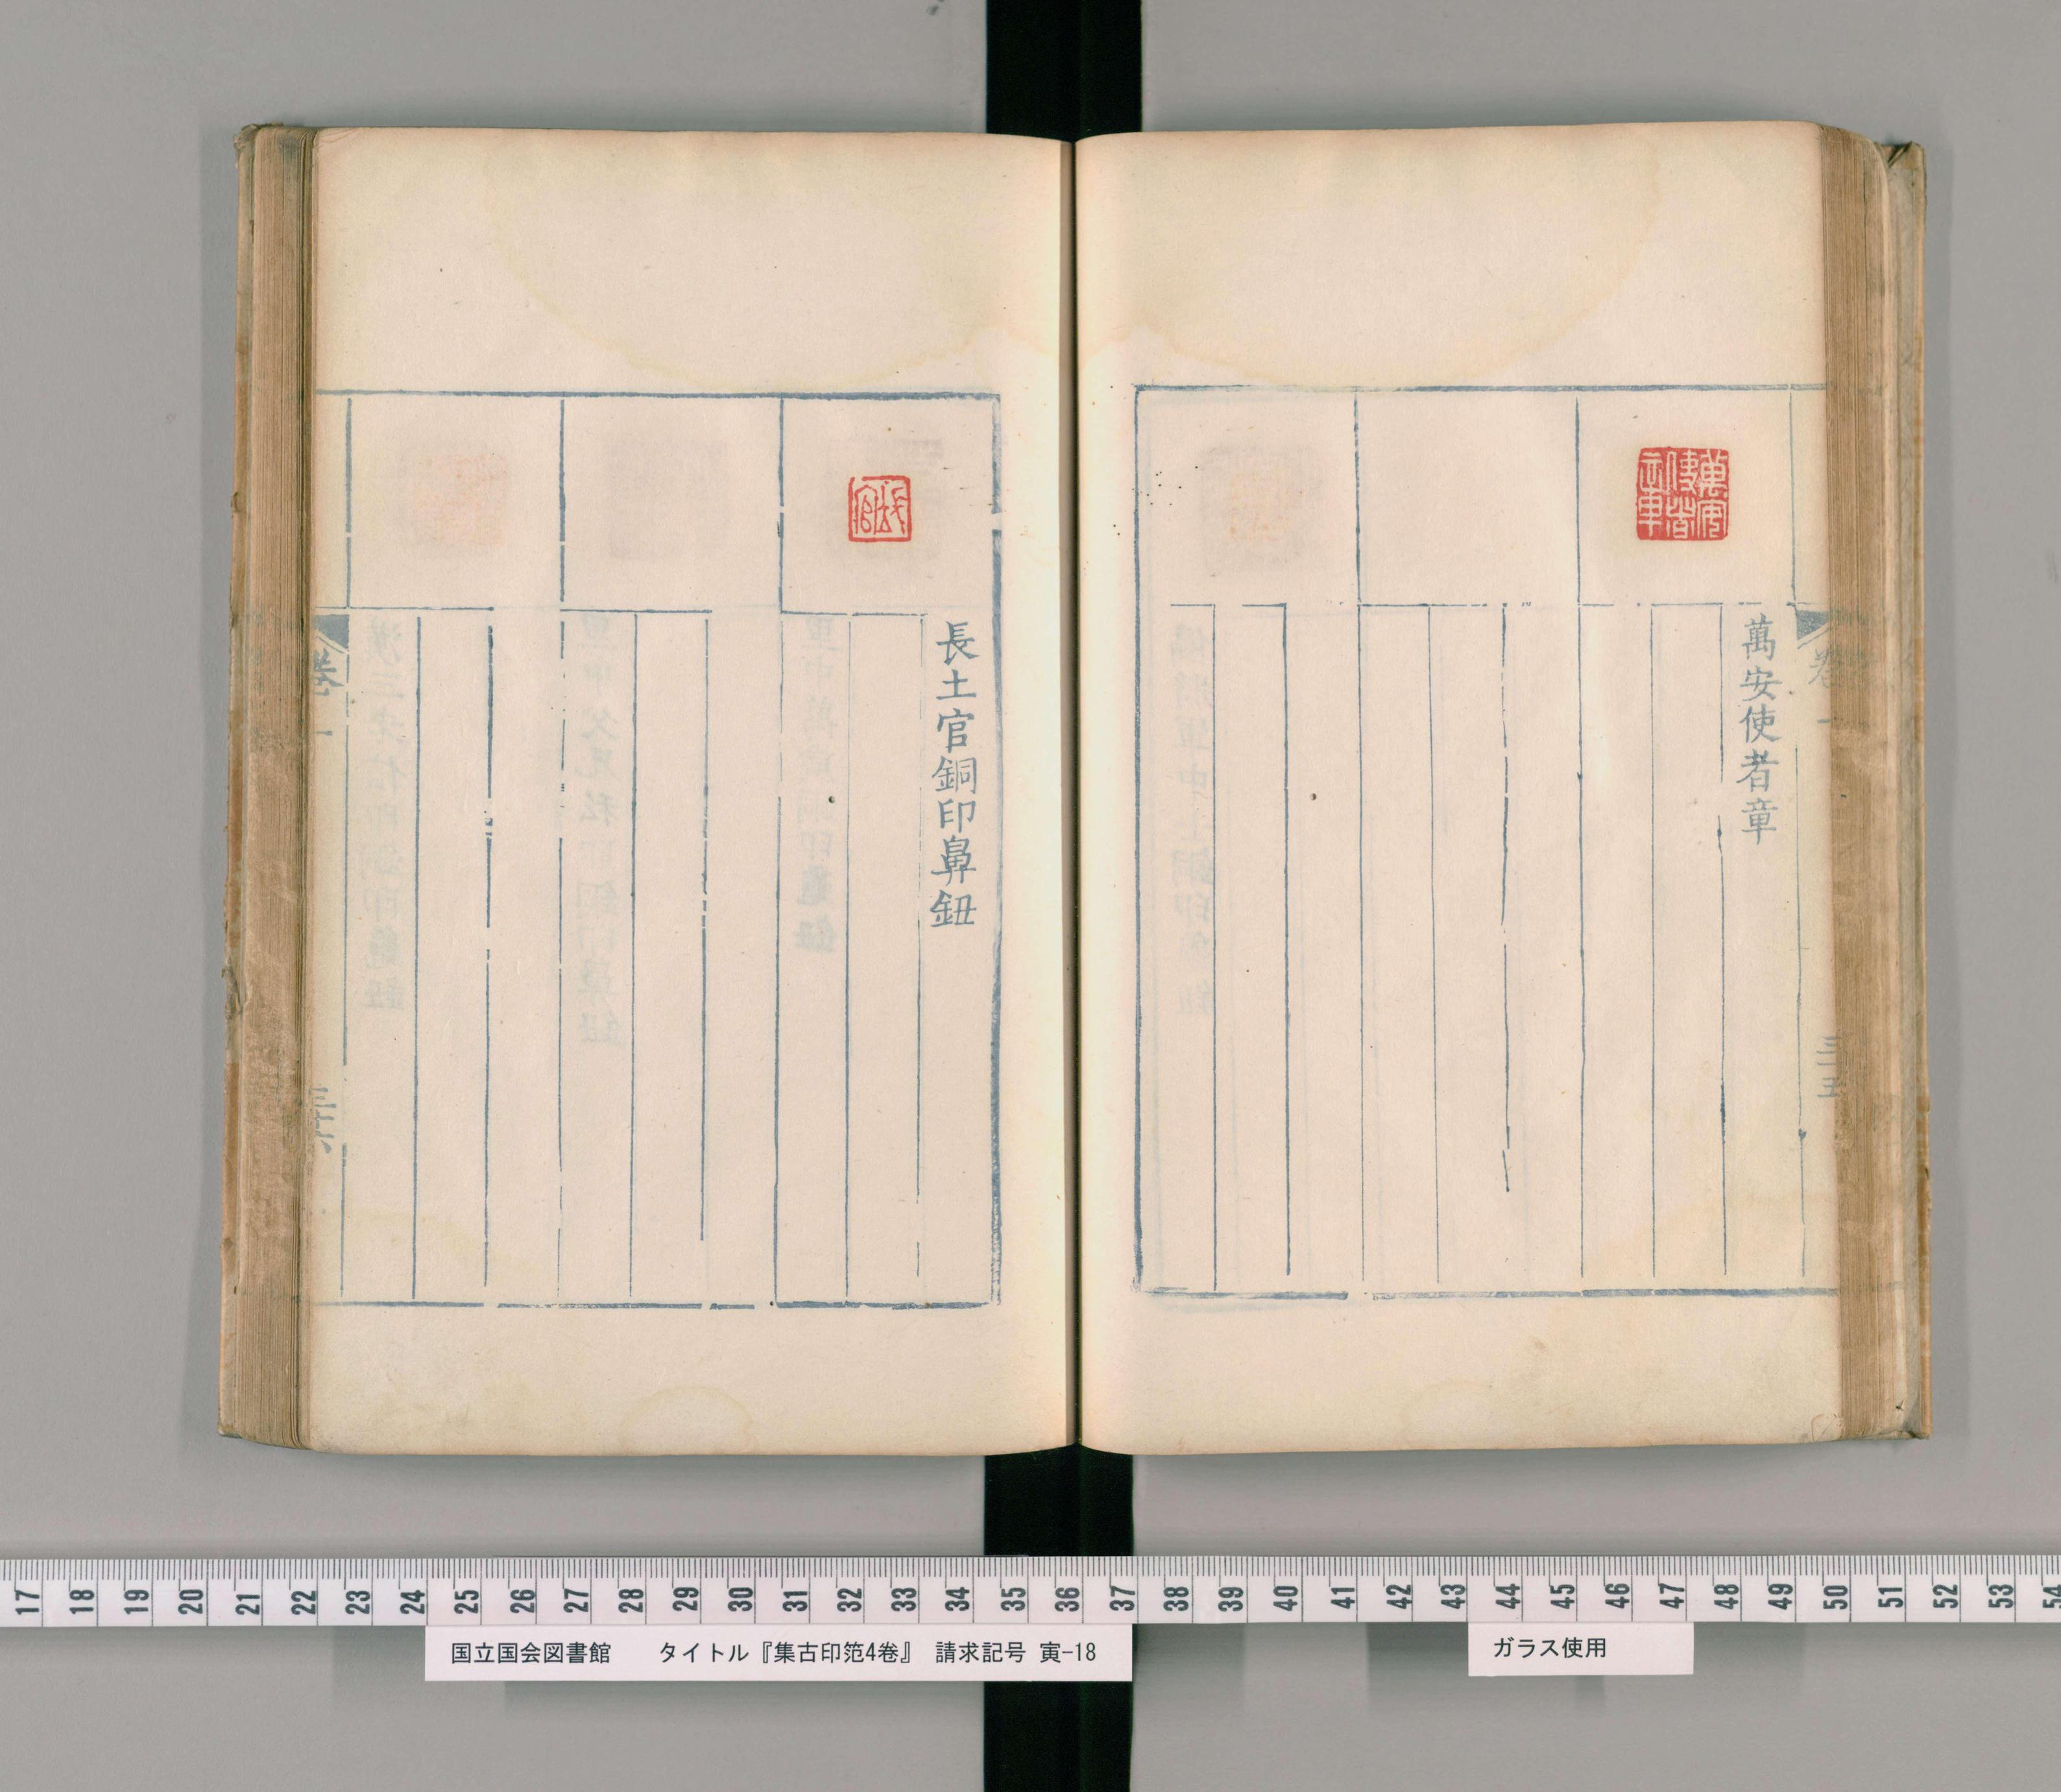 萬安使者章
卷一
三五
長土官銅印鼻鈕
卷一
三十六
17 18 19 20 21 22 23 24 25 26 27 28 29 30 31 32 33 34 35 36 37 38 39 40 41 42 43 44 45 46 47 48 49 50 51 52 53 54
国立国会図書館 タイトル『集古印笵4巻』 請求記号 寅-18
ガラス使用